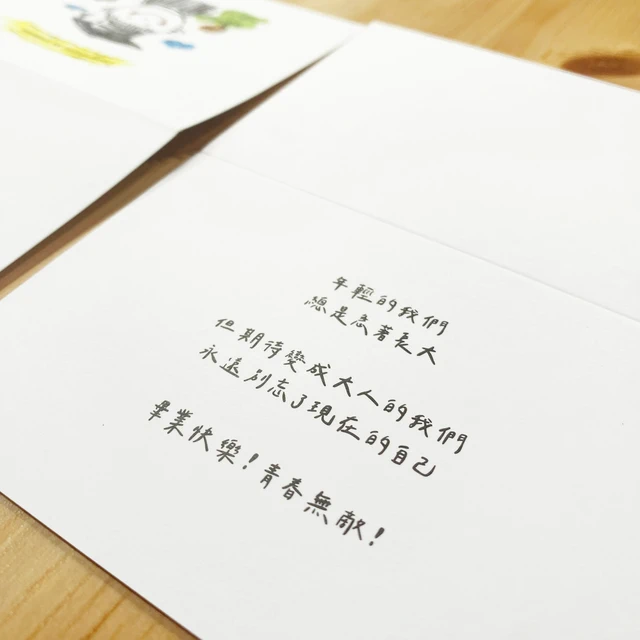 年輕的我們
總是急著長大
但期待變成大人的我們
永遠別忘了現在的自己
畢業快樂！青春無敵！